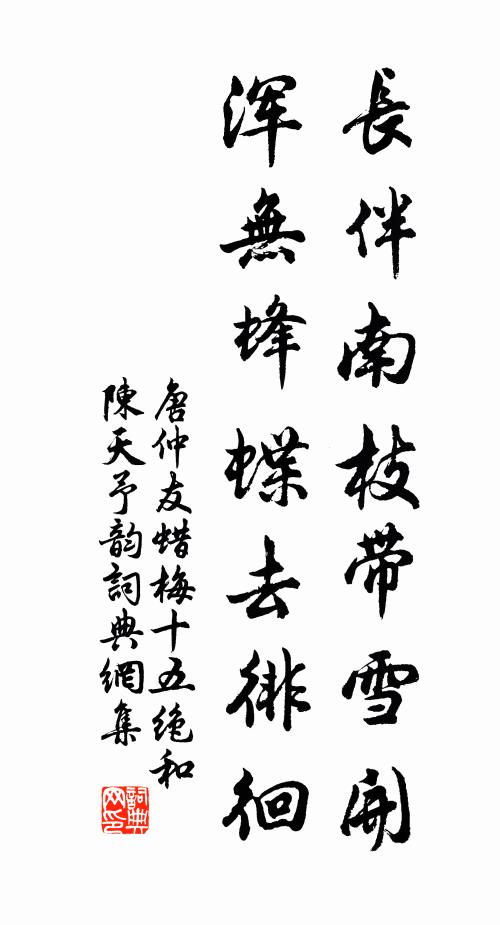 長伴南枝带雪開
渾無蜂蝶去徘徊
唐仲友蜡梅十五绝和
陳天予韵詞典網集
詞典网印